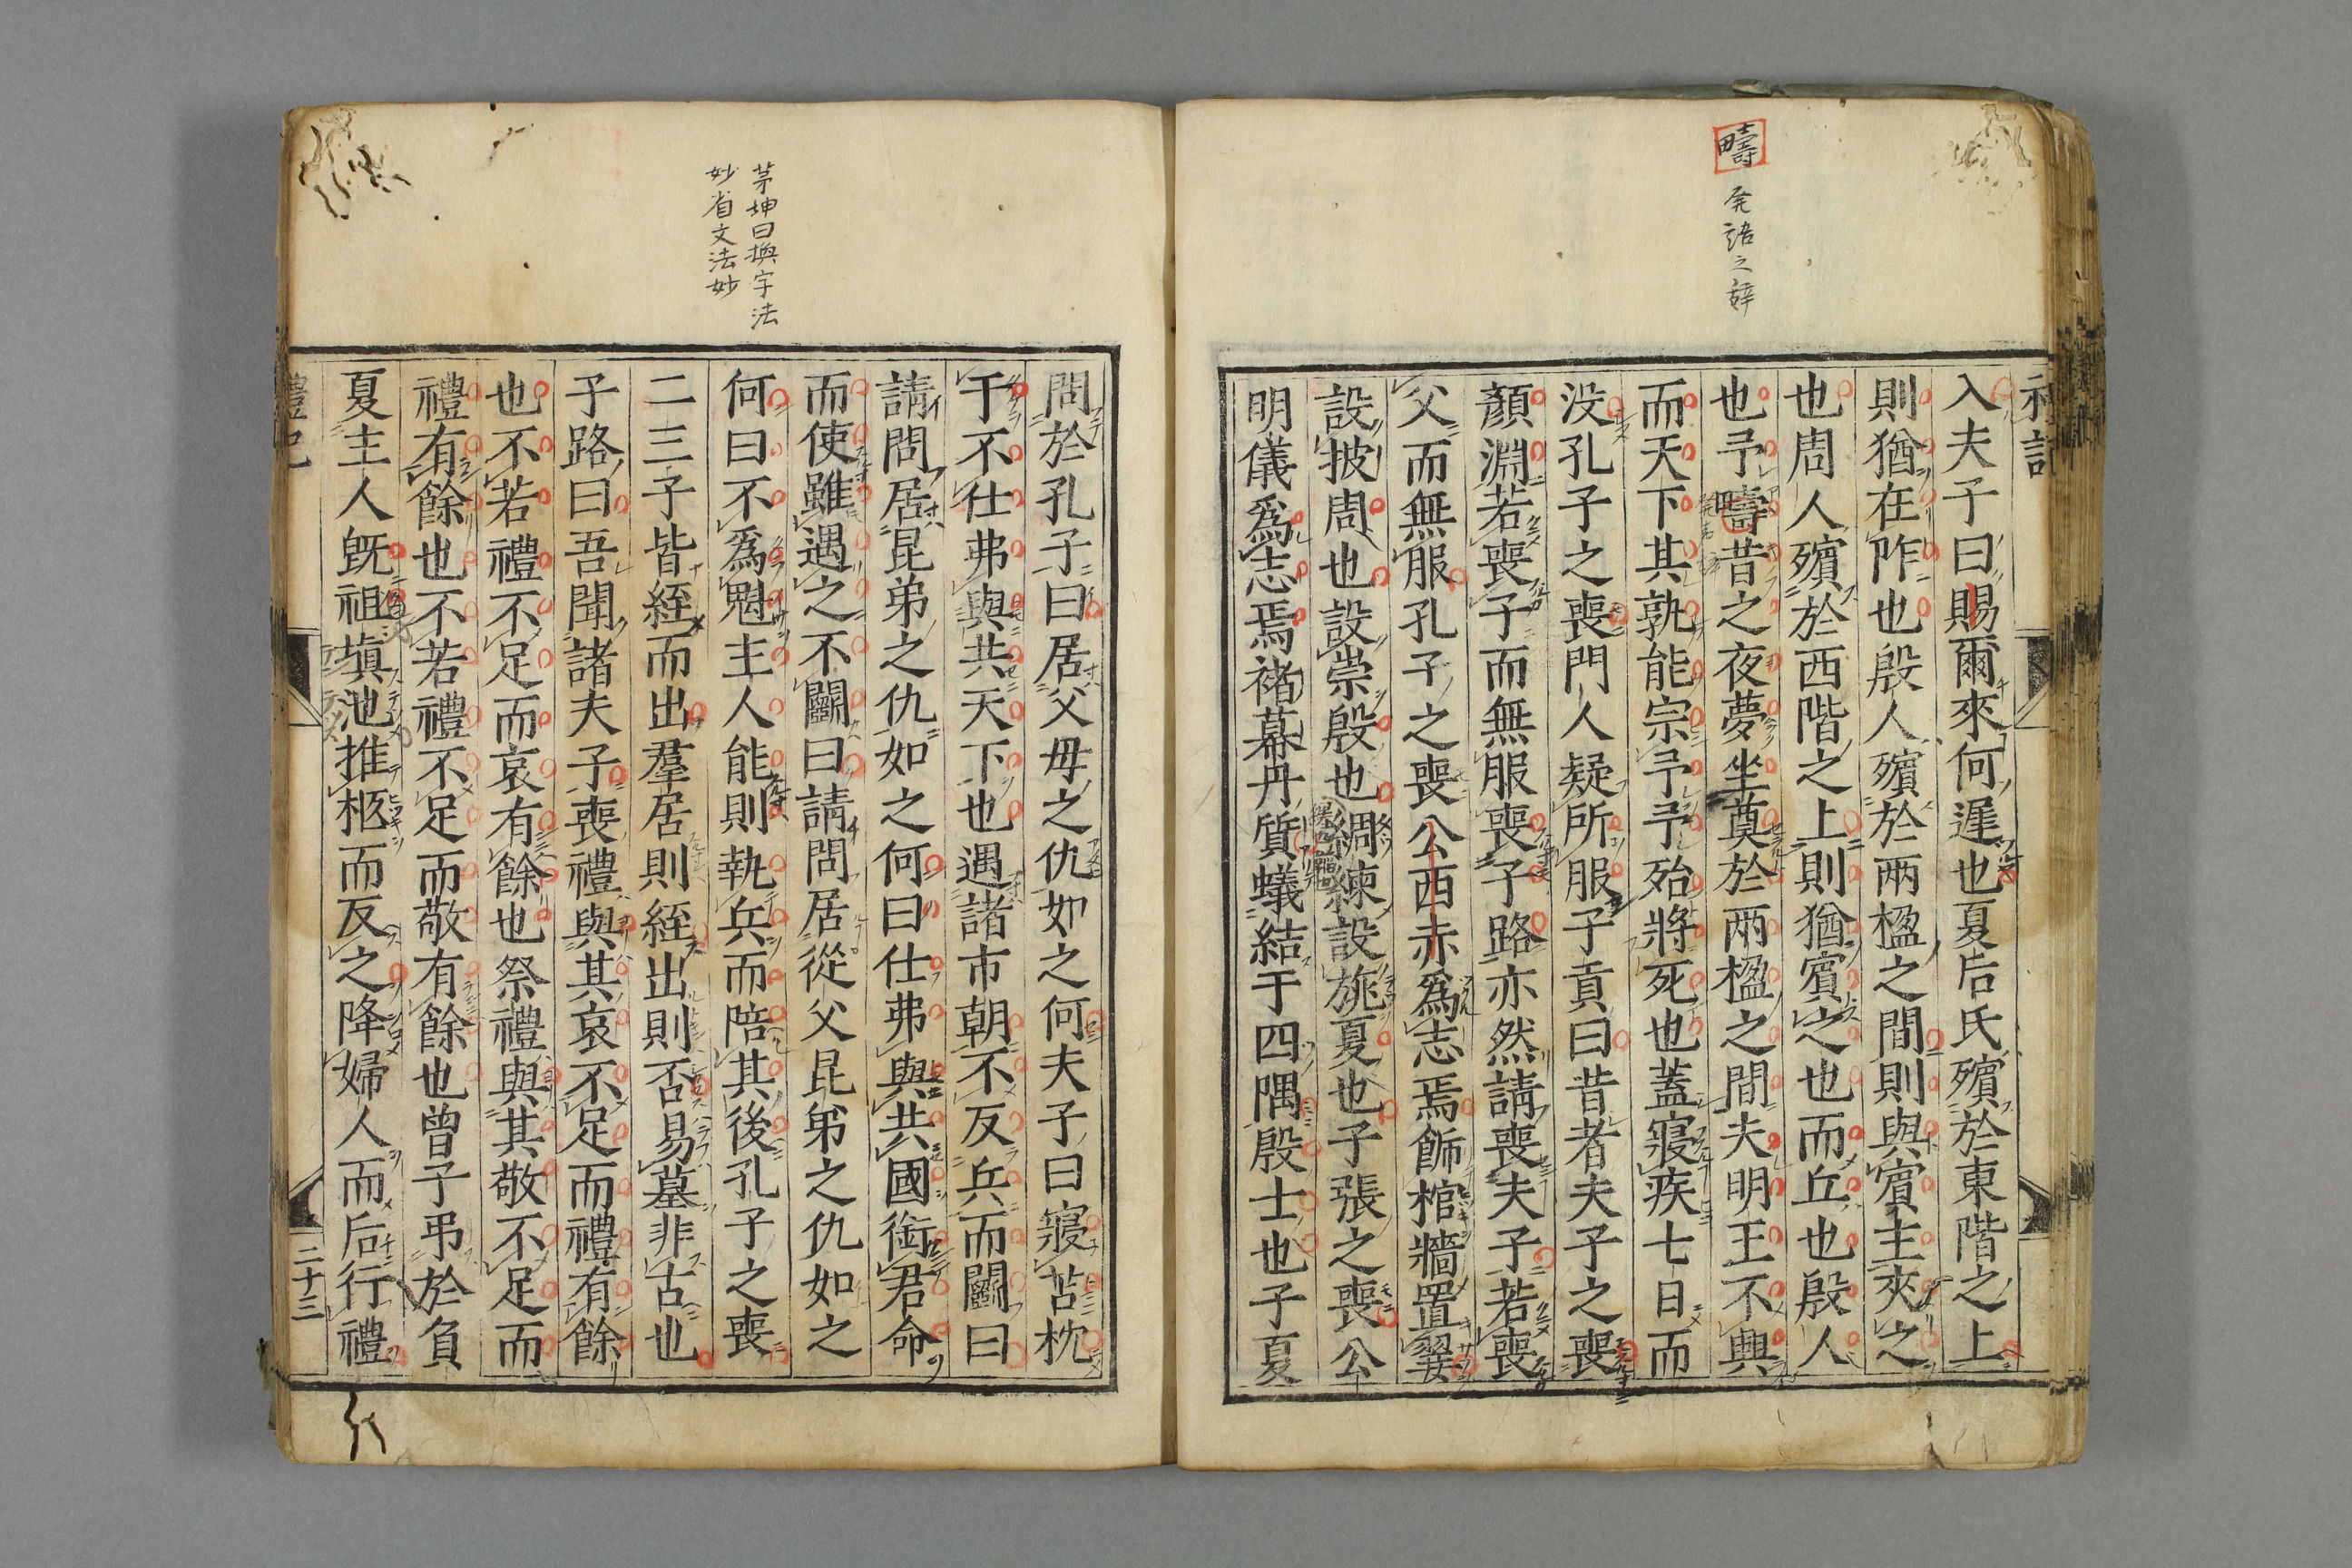 疇
発語之辞
入夫子曰賜爾來何遲也夏后氏殯於東階之上
則猶在阼也殷人殯於兩楹之間則與賓主夾之
也周人殯於西階之上則猶賓之也而丘也殷人
也予疇昔之夜夢坐奠於兩楹之間夫明王不興
而天下其孰能宗予予殆將死也蓋寢疾七日而
没孔子之喪門人疑所服子貢曰昔者夫子之喪
顏淵若喪子而無服喪子路亦然請喪夫子若喪
父而無服孔子之喪公西赤爲志焉飾棺牆置翣
設披周也設崇殷也綢練設旐夏也子張之喪公
明儀爲志焉褚幕丹質蟻結于四隅殷士也子夏
茅坤曰換字法
妙省文法妙
問於孔子曰居父母之仇如之何夫子曰寢苫枕
干不仕弗與共天下也遇諸市朝不反兵而鬬曰
請問居昆弟之仇如之何曰仕弗與共國銜君命
而使雖遇之不鬬曰請問居從父昆弟之仇如之
何曰不爲魁主人能則執兵而陪其後孔子之喪
二三子皆絰而出羣居則絰出則否易墓非古也
子路曰吾聞諸夫子喪禮與其哀不足而禮有餘
也不若禮不足而哀有餘也祭禮與其敬不足而
禮有餘也不若禮不足而敬有餘也曾子弔於負
夏主人旣祖塡池推柩而反之降婦人而后行禮
禮記
二十三